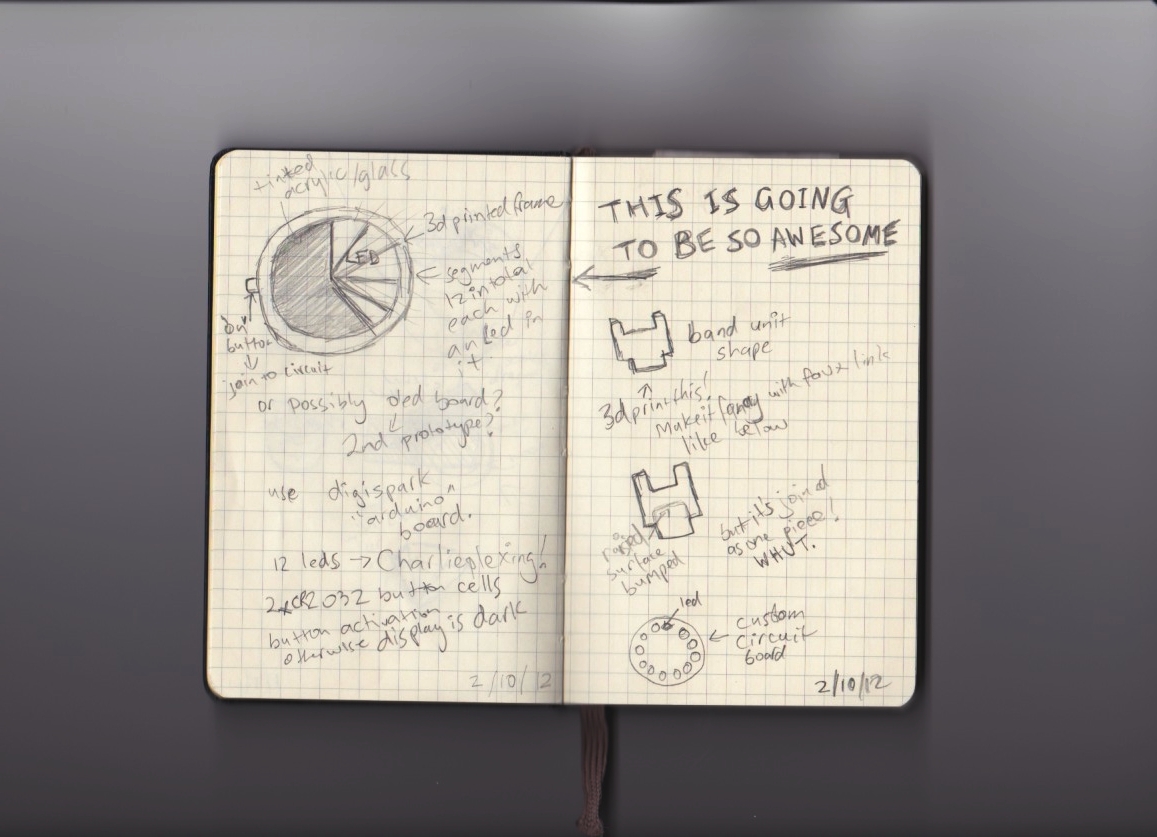 tinted
acrylic/glass
3d printed frame
LED
segments
12 in total
each with
an led in
it.
"on"
button
join to circuit
or possibly oled board?
2nd prototype?
use digispark
"arduino"
board.
12 leds → Charlieplexing!
2xCR2032 button cells
button activation
otherwise display is dark
2/10/12
THIS IS GOING
TO BE SO AWESOME
band unit
shape
3d print this!
Make it fancy with faux link
like below
raised
surface
bumped
but it's joined
as one piece!
WHUT.
led
custom
circuit
board
2/10/12